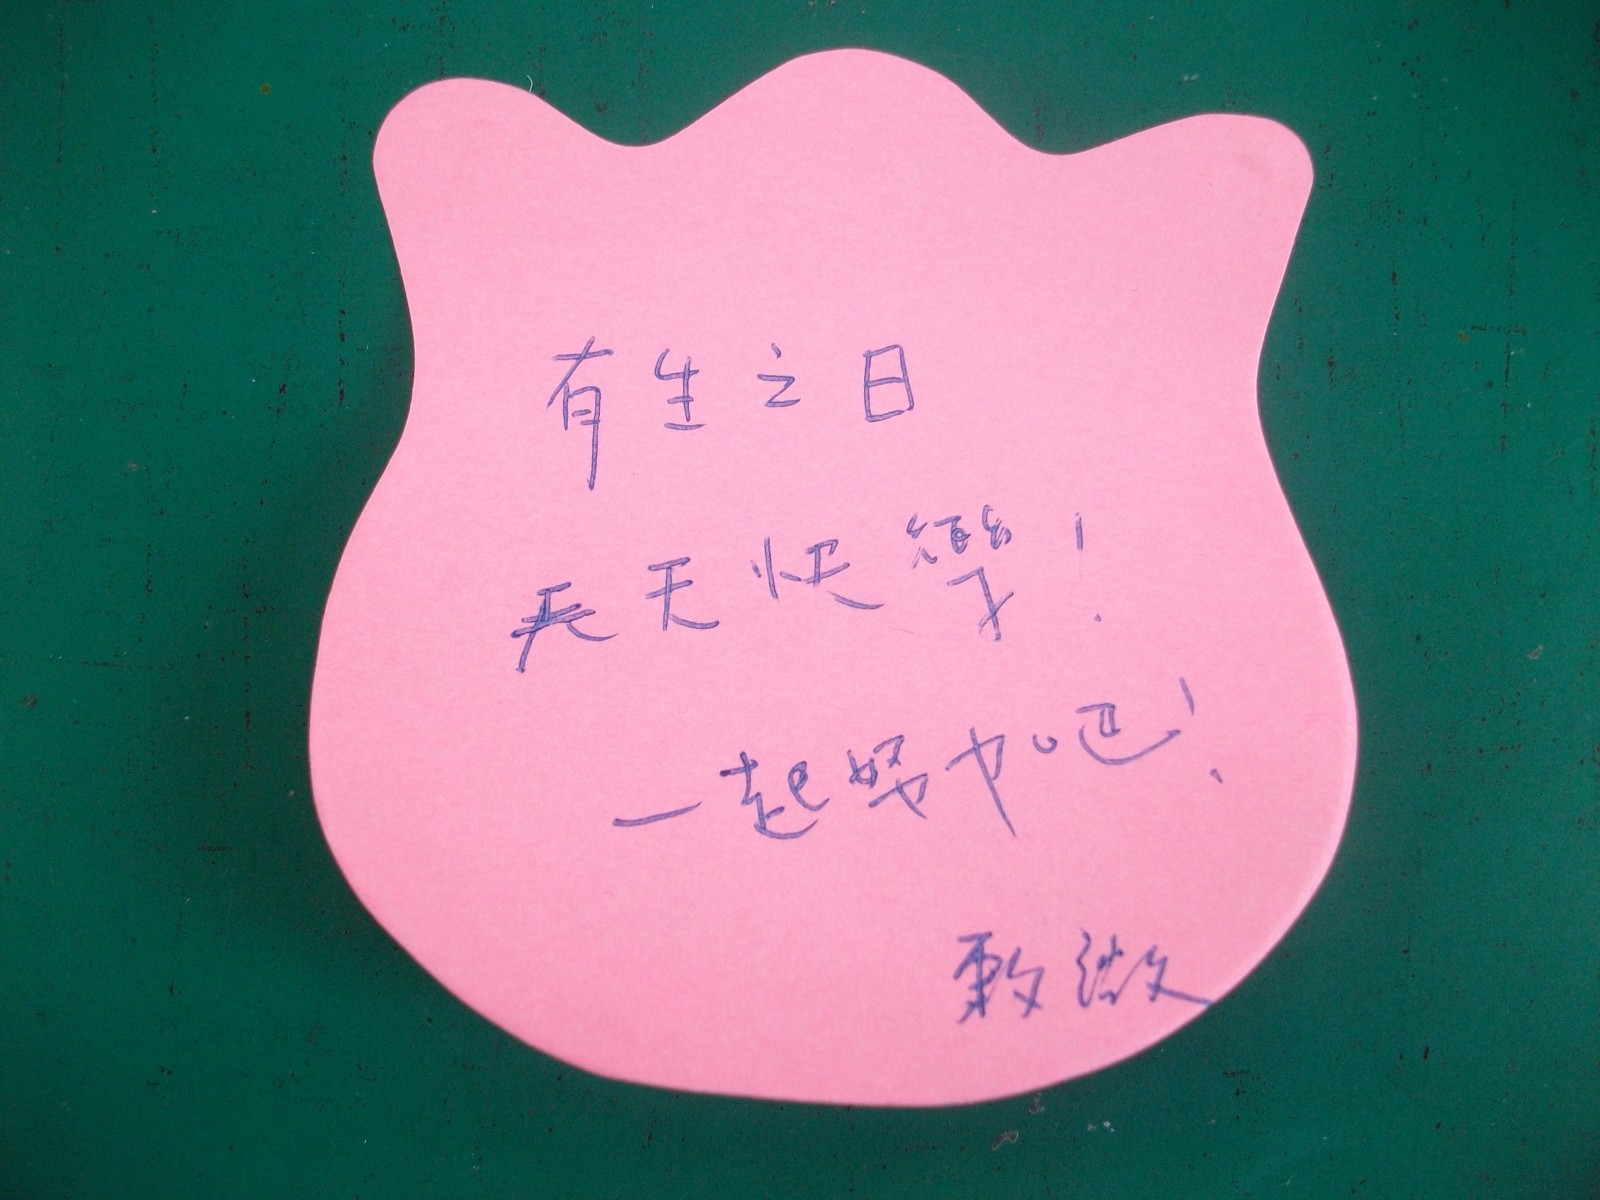 有生之日
天天快樂!
一起努力吧!